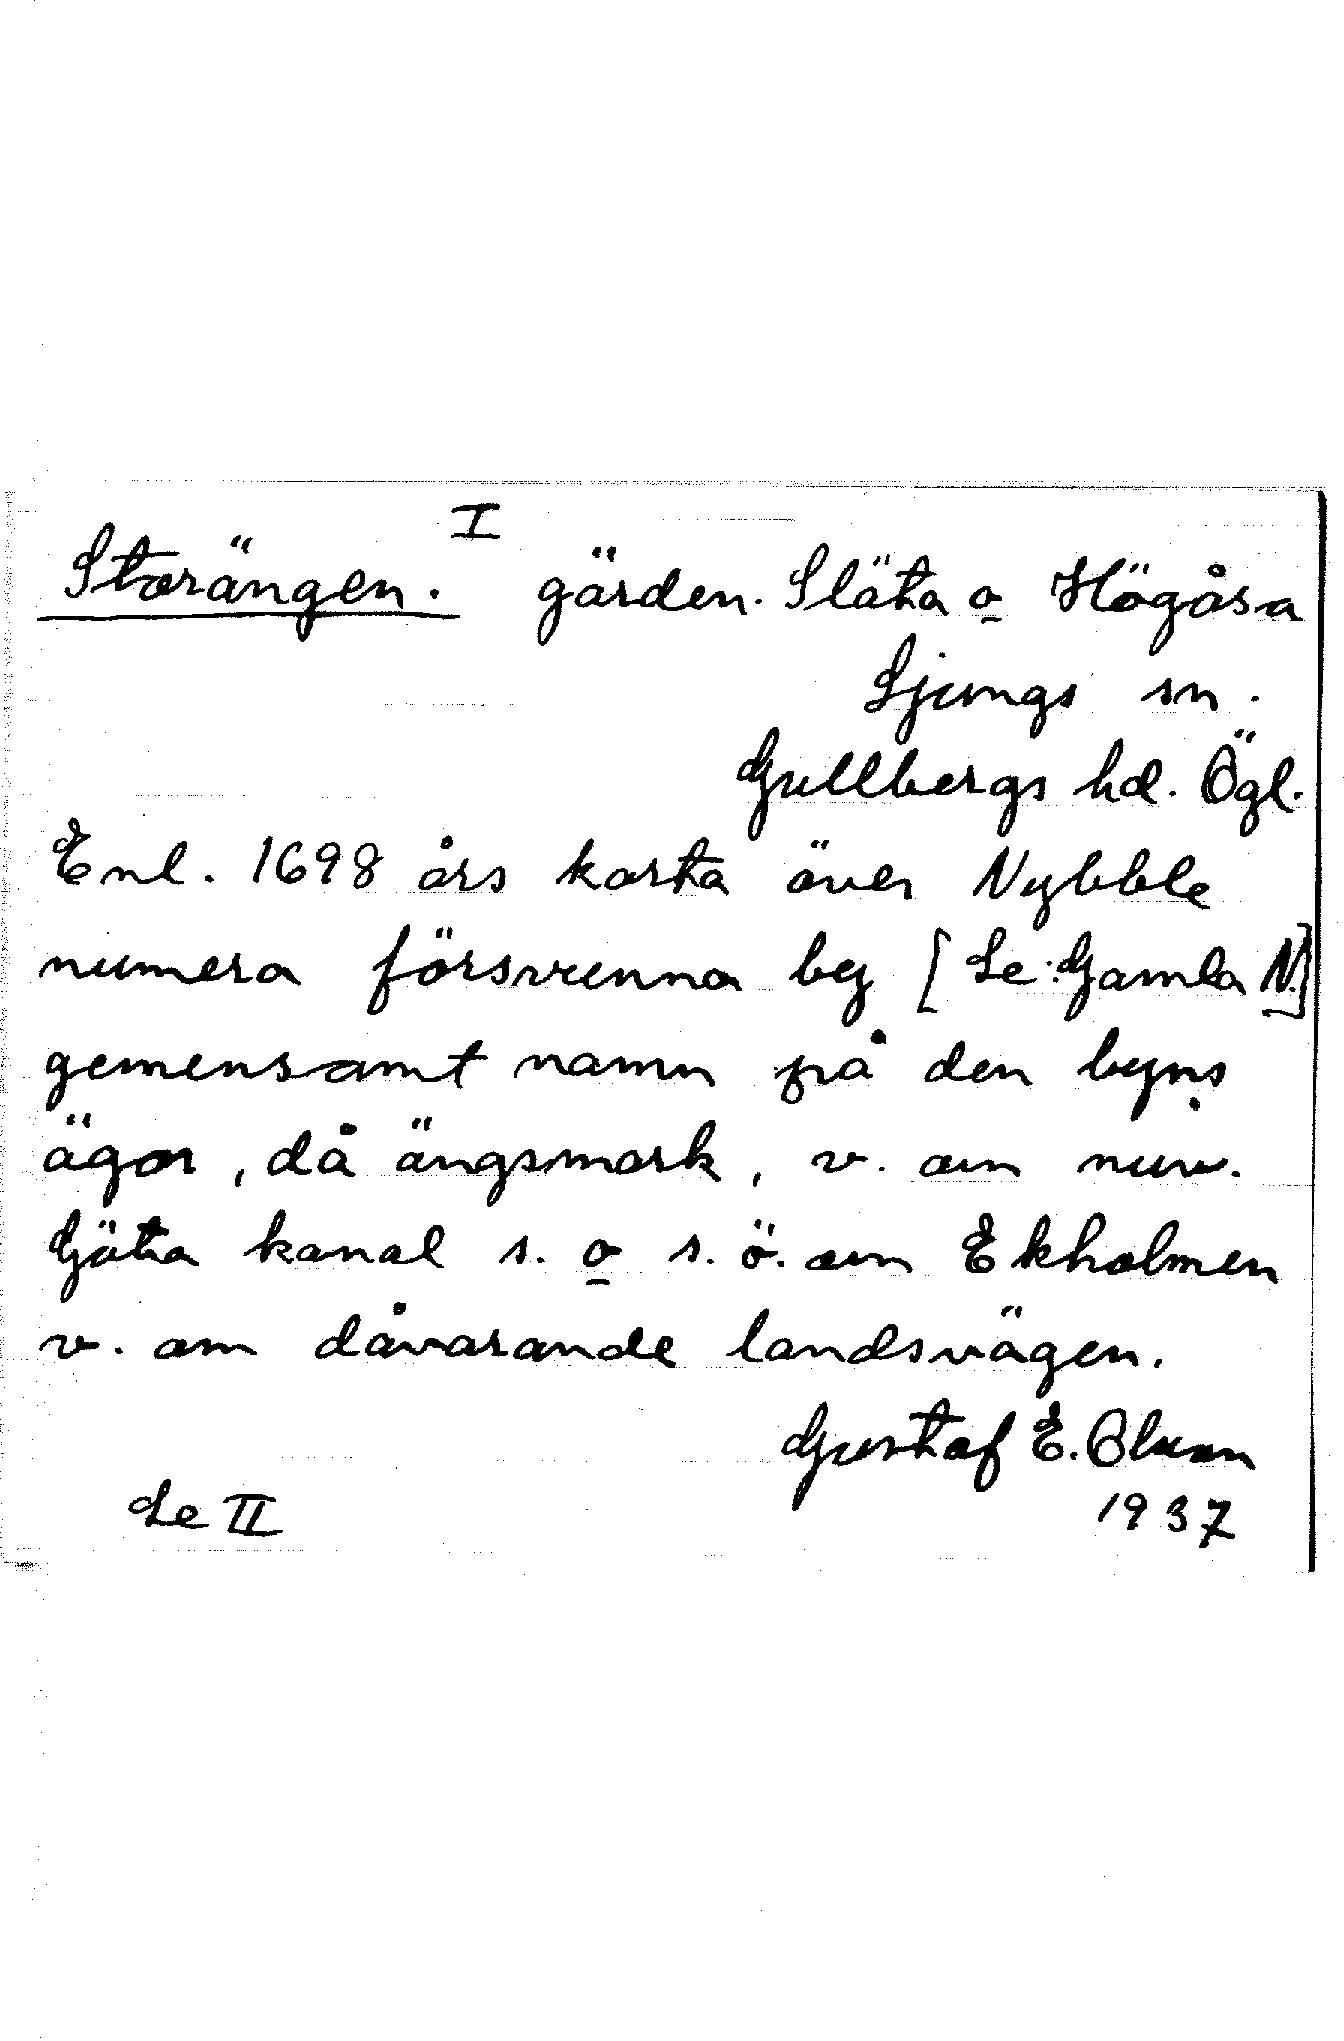 I
Storängen. gärden. Släta o Högåsa
Ljungs sn.
Gullbergs hd. Ögl.
Enl. 1698 års karta över Nybble
numera försvunna by [Se: Gamla N.]
gemensamt namn på den byns
ägor, då ängsmark, v. om nuv.
Göta kanal s. o s. ö. om Ekholmen
v. om dåvarande landsvägen.
Gustaf E. Olsson
Se II 1937